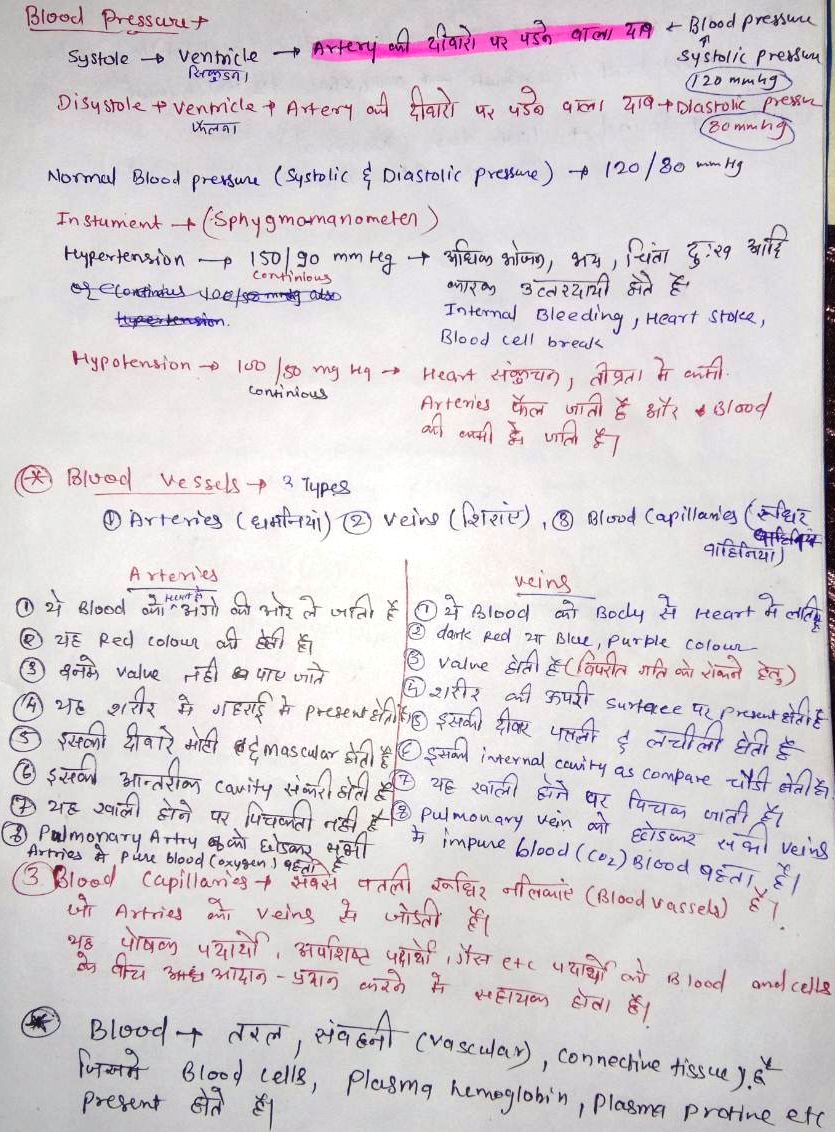 Blood Pressure →
Systole → Ventricle → Artery की दीवारो पर पडने वाला दाब ← Blood pressure
सिकुडना
Systolic pressure
120 mmHg
Disystole → Ventricle → Artery की दीवारो पर पडने वाला दाब → Diastolic pressure
फैलना
80 mmHg
Normal Blood pressure (Systolic & Diastolic pressure) → 120/80 mmHg
Instument → (Sphygmomanometer)
Hypertension → 150/90 mm Hg → अधिक भोजन, भय, चिंता दुःख आदि
continious
कारक उत्तरदायी होते है
Internal Bleeding, Heart Stoke,
Blood cell break
Hypertension.
Hypotension → 100/50 mg Hg → Heart संकुचन, तीव्रता मे कमी.
continious
Arteries फैल जाती है और Blood
की कमी हो जाती है।
* Blood Vessels → 3 Types
① Arteries (धमनियां) ② Veins (शिराएं), ③ Blood Capillaries (रूधिर
वाहिनिया)
Arteries
① ये Blood को Heart से अंगो की ओर ले जाती है
② यह Red colour की होती है।
③ इनमे value नही पाए जाते
④ यह शरीर मे गहराई मे present होती है
⑤ इसकी दीवारे मोटी & mascular होती है
⑥ इसकी आन्तरीक cavity संकरी होती है
⑦ यह खाली होने पर पिचकती नही है
⑧ Pulmonary Artry को छोडकर सभी
Artries मे pure blood (oxygen) बहता है
Veins
① ये Blood को Body से Heart मे लाती है
② dark Red या Blue, purple colour
③ value होती है (विपरीत गति को रोकने हेतु)
④ शरीर की ऊपरी surface पर present होती है
⑤ इसकी दीवार पतली & लचीली होती है
⑥ इसकी internal cavity as compare चौडी होती है।
⑦ यह खाली होने पर पिचक जाती है।
⑧ Pulmonary vein को छोडकर सभी veins
मे impure blood (CO2) Blood बहता है।
3. Blood Capillaries → सबसे पतली रूधिर नलिकाएं (Blood vassels) है।
जो Artries को veins से जोडती है।
यह पोषक पदार्थो, अपशिष्ट पदार्थो, गैस etc पदार्थो को Blood and cells
के बीच आदान-प्रदान करने मे सहायक होता है।
* Blood → तरल, संवहनी (vascular), connective tissue) है
जिसमे Blood cells, Plasma hemoglobin, Plasma protine etc
present होते है।